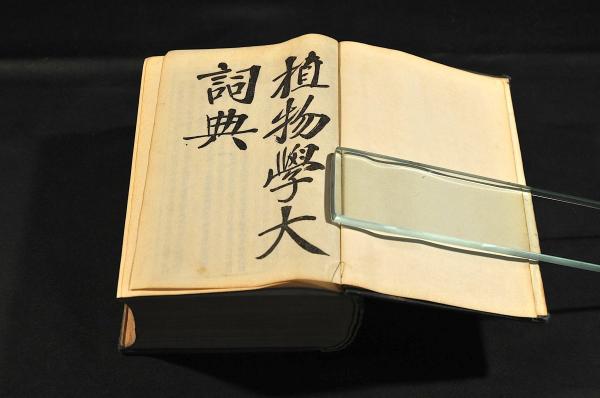 植物學大
詞典